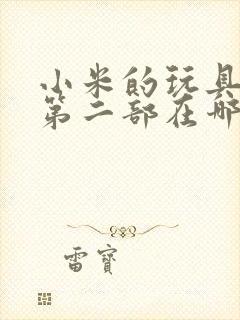 小米的玩具
第二部在哪
雷寶